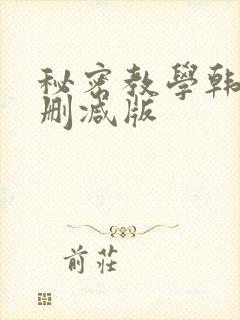 秘密教學韩
删减版
前莊